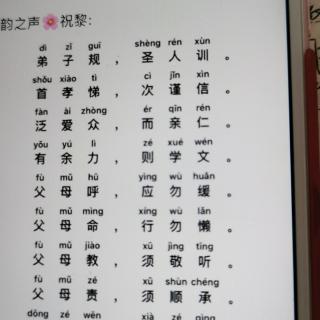 韵之声🌸祝黎:
dì zǐ guī shèng rén xùn
弟子规，圣人训。
shǒu xiào tì cì jǐn xìn
首孝悌，次谨信。
fàn ài zhòng ér qīn rén
泛爱众，而亲仁。
yǒu yú lì zé xué wén
有余力，则学文。
fù mǔ hū yìng wù huǎn
父母呼，应勿缓。
fù mǔ mìng xíng wù lǎn
父母命，行勿懒。
fù mǔ jiào xū jìng tīng
父母教，须敬听。
fù mǔ zé xū shùn chéng
父母责，须顺承。
dōng zé wēn xià zé qìng